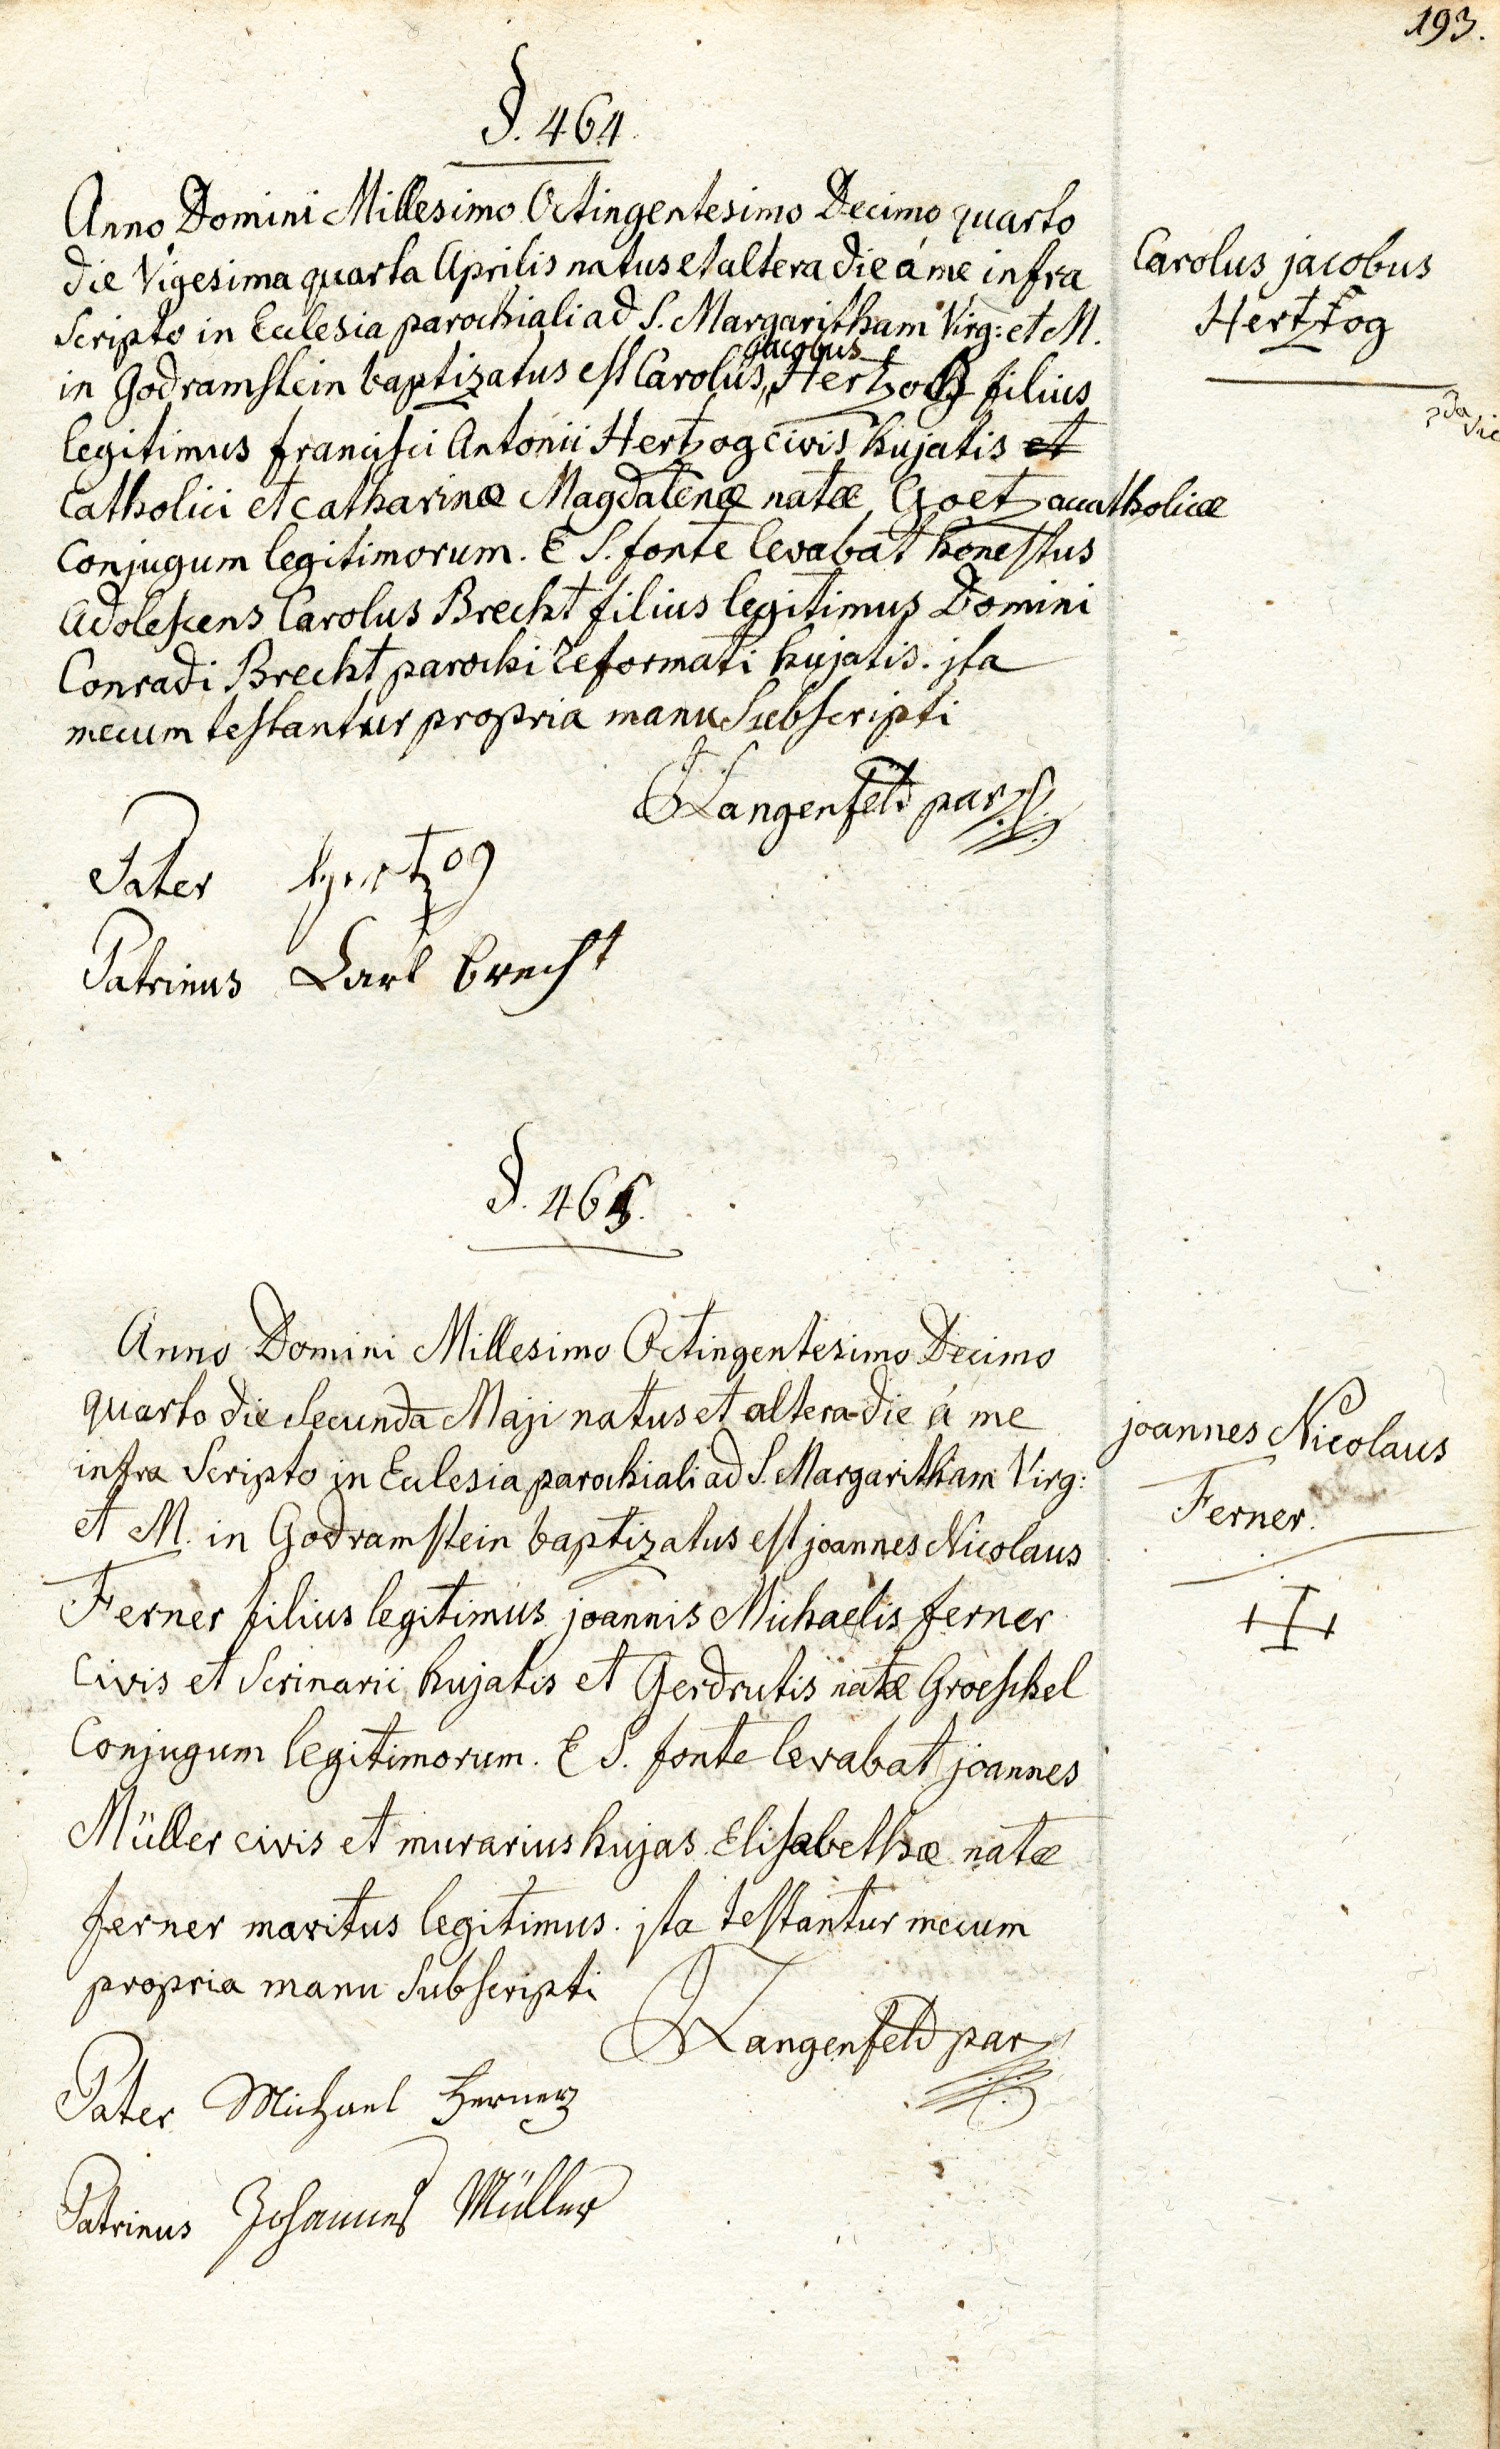 193.
§. 464.
Anno Domini Millesimo Octingentesimo Decimo quarto
die Vigesima quarta Aprilis natus et altera die á me infra
Scripto in Ecclesia parochiali ad S. Margaritham Virg: et M.
jacobus
in Godramstein baptizatus est Carolus, Hertzog filius
legitimus francisci Antonii Hertzog civis hujatis et
Catholici et catharinæ Magdalenæ natæ Goetz acatholicæ
Conjugum legitimorum. E S. fonte levabat honestus
Adolescens Carolus Brecht filius legitimus Domini
Conradi Brecht parochi reformati hujatis. jta
mecum testantur propria manu Subscripti
Langenfeld par
Pater Hertzog
Patrinus Carl Brecht
Carolus jacobus
Hertzog
§. 465.
Anno Domini Millesimo Octingentesimo Decimo
quarto die Secunda Maji natus et altera die á me
infra Scripto in Ecclesia parochiali ad S. Margaritham Virg:
et M. in Godramstein baptizatus est joannes Nicolaus
Ferner filius legitimus joannis Michaelis ferner
Civis et Scrinarii hujatis et Gerdrutis natæ Groeschel
Conjugum legitimorum. E S. fonte levabat joannes
Müller civis et murarius hujas Elisabethæ natæ
ferner maritus legitimus. jta testantur mecum
propria manu Subscripti
Langenfeld par
Pater Michael Ferner
Patrinus Johannes Müller
joannes Nicolaus
Ferner.